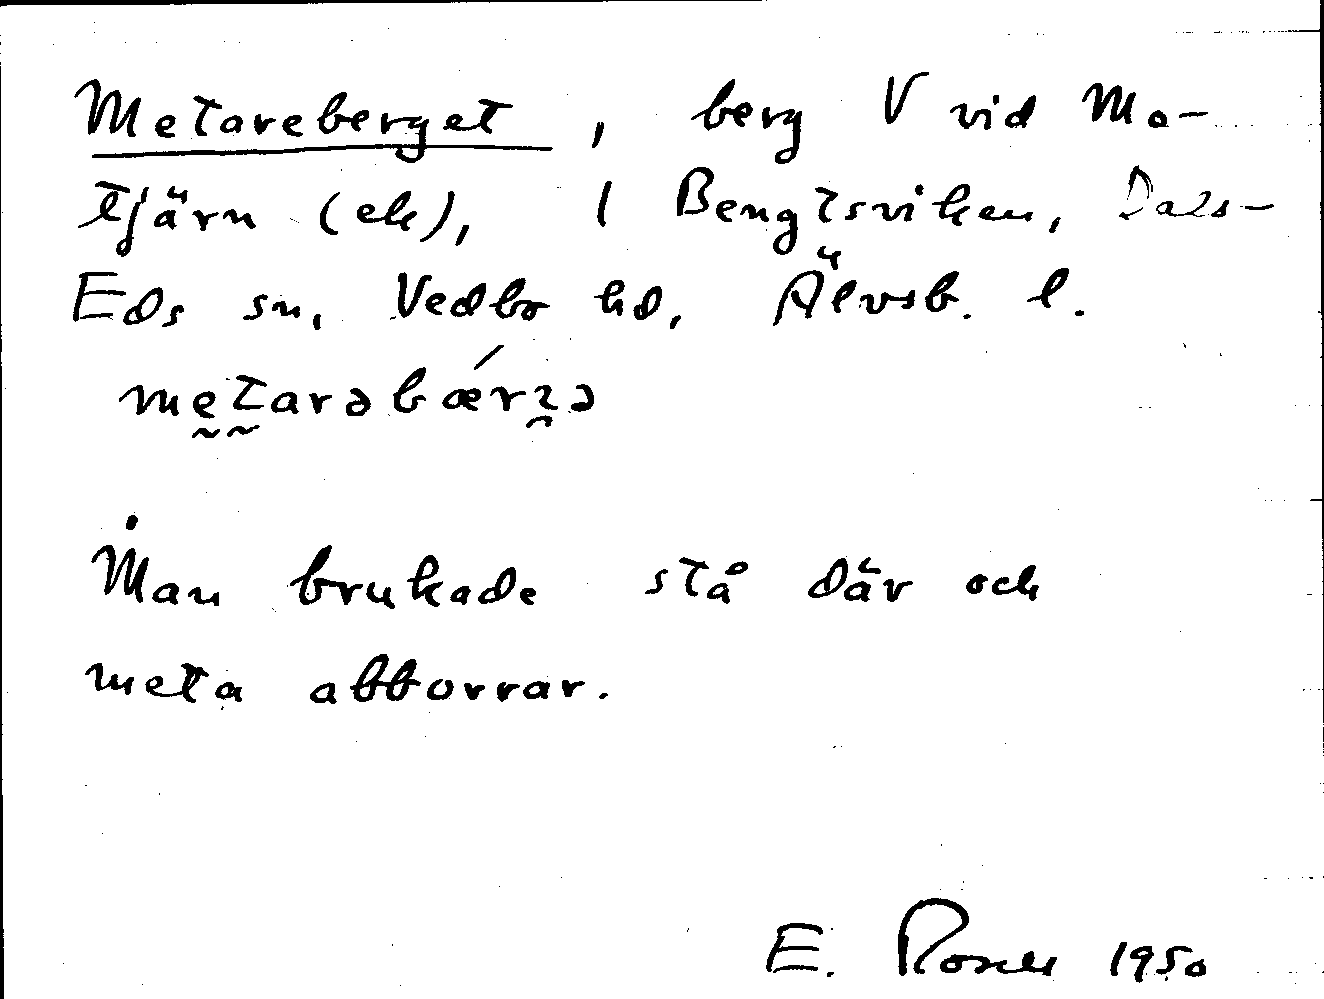 Metareberget, berg V vid Mo-
tjärn (ek), 1 Bengtsviken, Dals-
Eds sn, Vedbo hd, Älvsb. l.
mḛt̰arəbǽrʒ̑ə
Man brukade stå där och
meta abborrar.
E. 1950